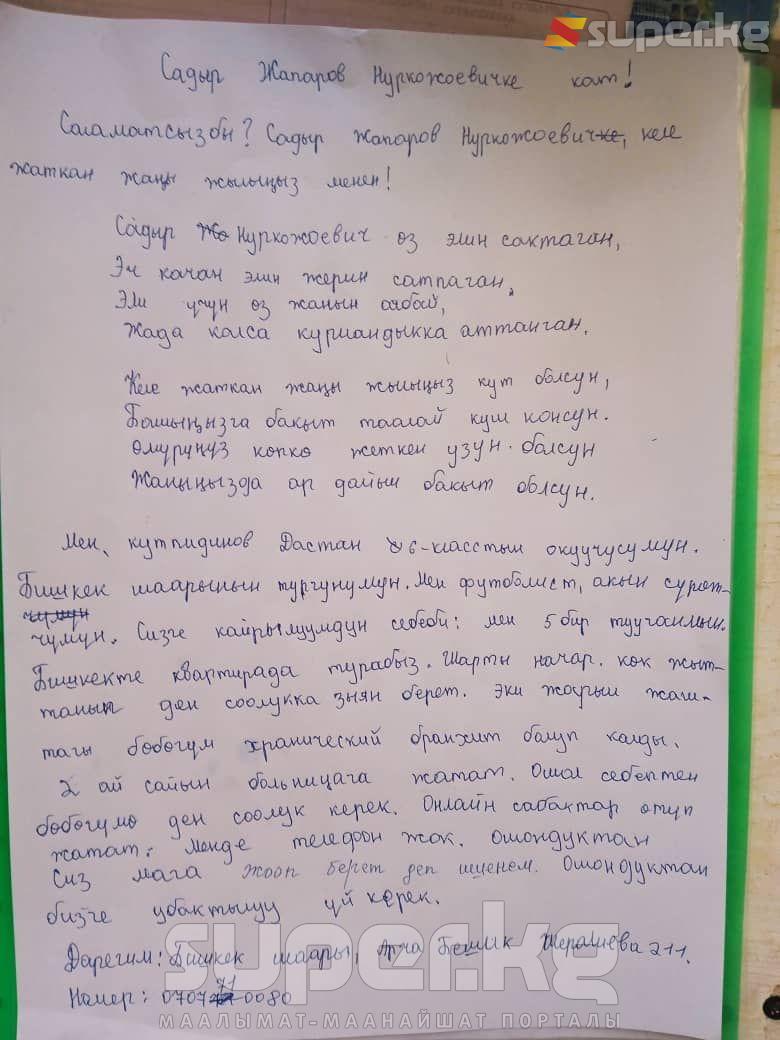 super.kg
Садыр Жапаров Нуркожоевичке кат!
Саламатсызбы? Садыр жапаров Нуркожоевичке, келе
жаткан жаңы жылыңыз менен!
Садыр Жа Нуркожоевич өз элин сактаган,
Эч качан элин жерин сатпаган,
Эли үчүн өз жанын аябай,
Жада калса курмандыкка аттанган.
Келе жаткан жаңы жылыңыз кут болсун,
Башыңызга бакыт таалай куш консун.
Өмүрүңүз көпкө жеткен узун болсун
Жаныңызда ар дайым бакыт болсун.
Мен, кутпидинов Дастан 6-класстын окуучусумун.
Бишкек шаарынын тургунумун. Мен футболист, акын сүрөт-
чүмүн
чүмүн. Сизге кайрылуумдун себеби: мен 5 бир тууганмын.
Бишкекте квартирада турабыз. Шарты начар. көк жыт-
танып ден соолукка зыян берет. Эки жарым жаш-
тагы бөбөгүм хранический бранхит болуп калды.
2 ай сайын больницага жатат. Ошол себептен
бөбөгүмө ден соолук керек. Онлайн сабактар өтүп
жатат. Менде телефон жок. ошондуктан
Сиз мага жооп берет деп ишенем. Ошондуктан
бизге убактылуу үй керек.
Дарегим: Бишкек шаары, Арча Бешик 211.
Намер: 0707 71 0080
super.kg
МААЛЫМАТ-МААНАЙШАТ ПОРТАЛЫ